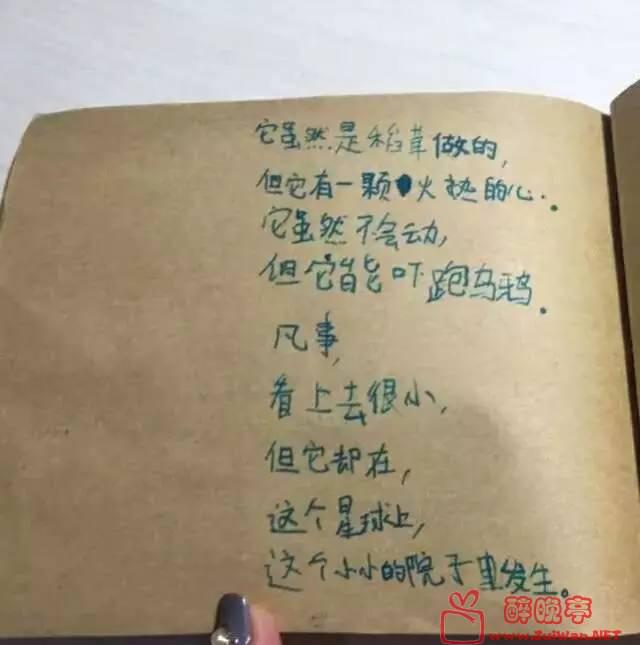 它虽然是稻草做的，
但它有一颗火热的心．
它虽然不会动，
但它能吓跑乌鸦．
凡事，
看上去很小，
但它却在，
这个星球上，
这个小小的院子里发生。
醉晚亭
www.ZuiWan.NET